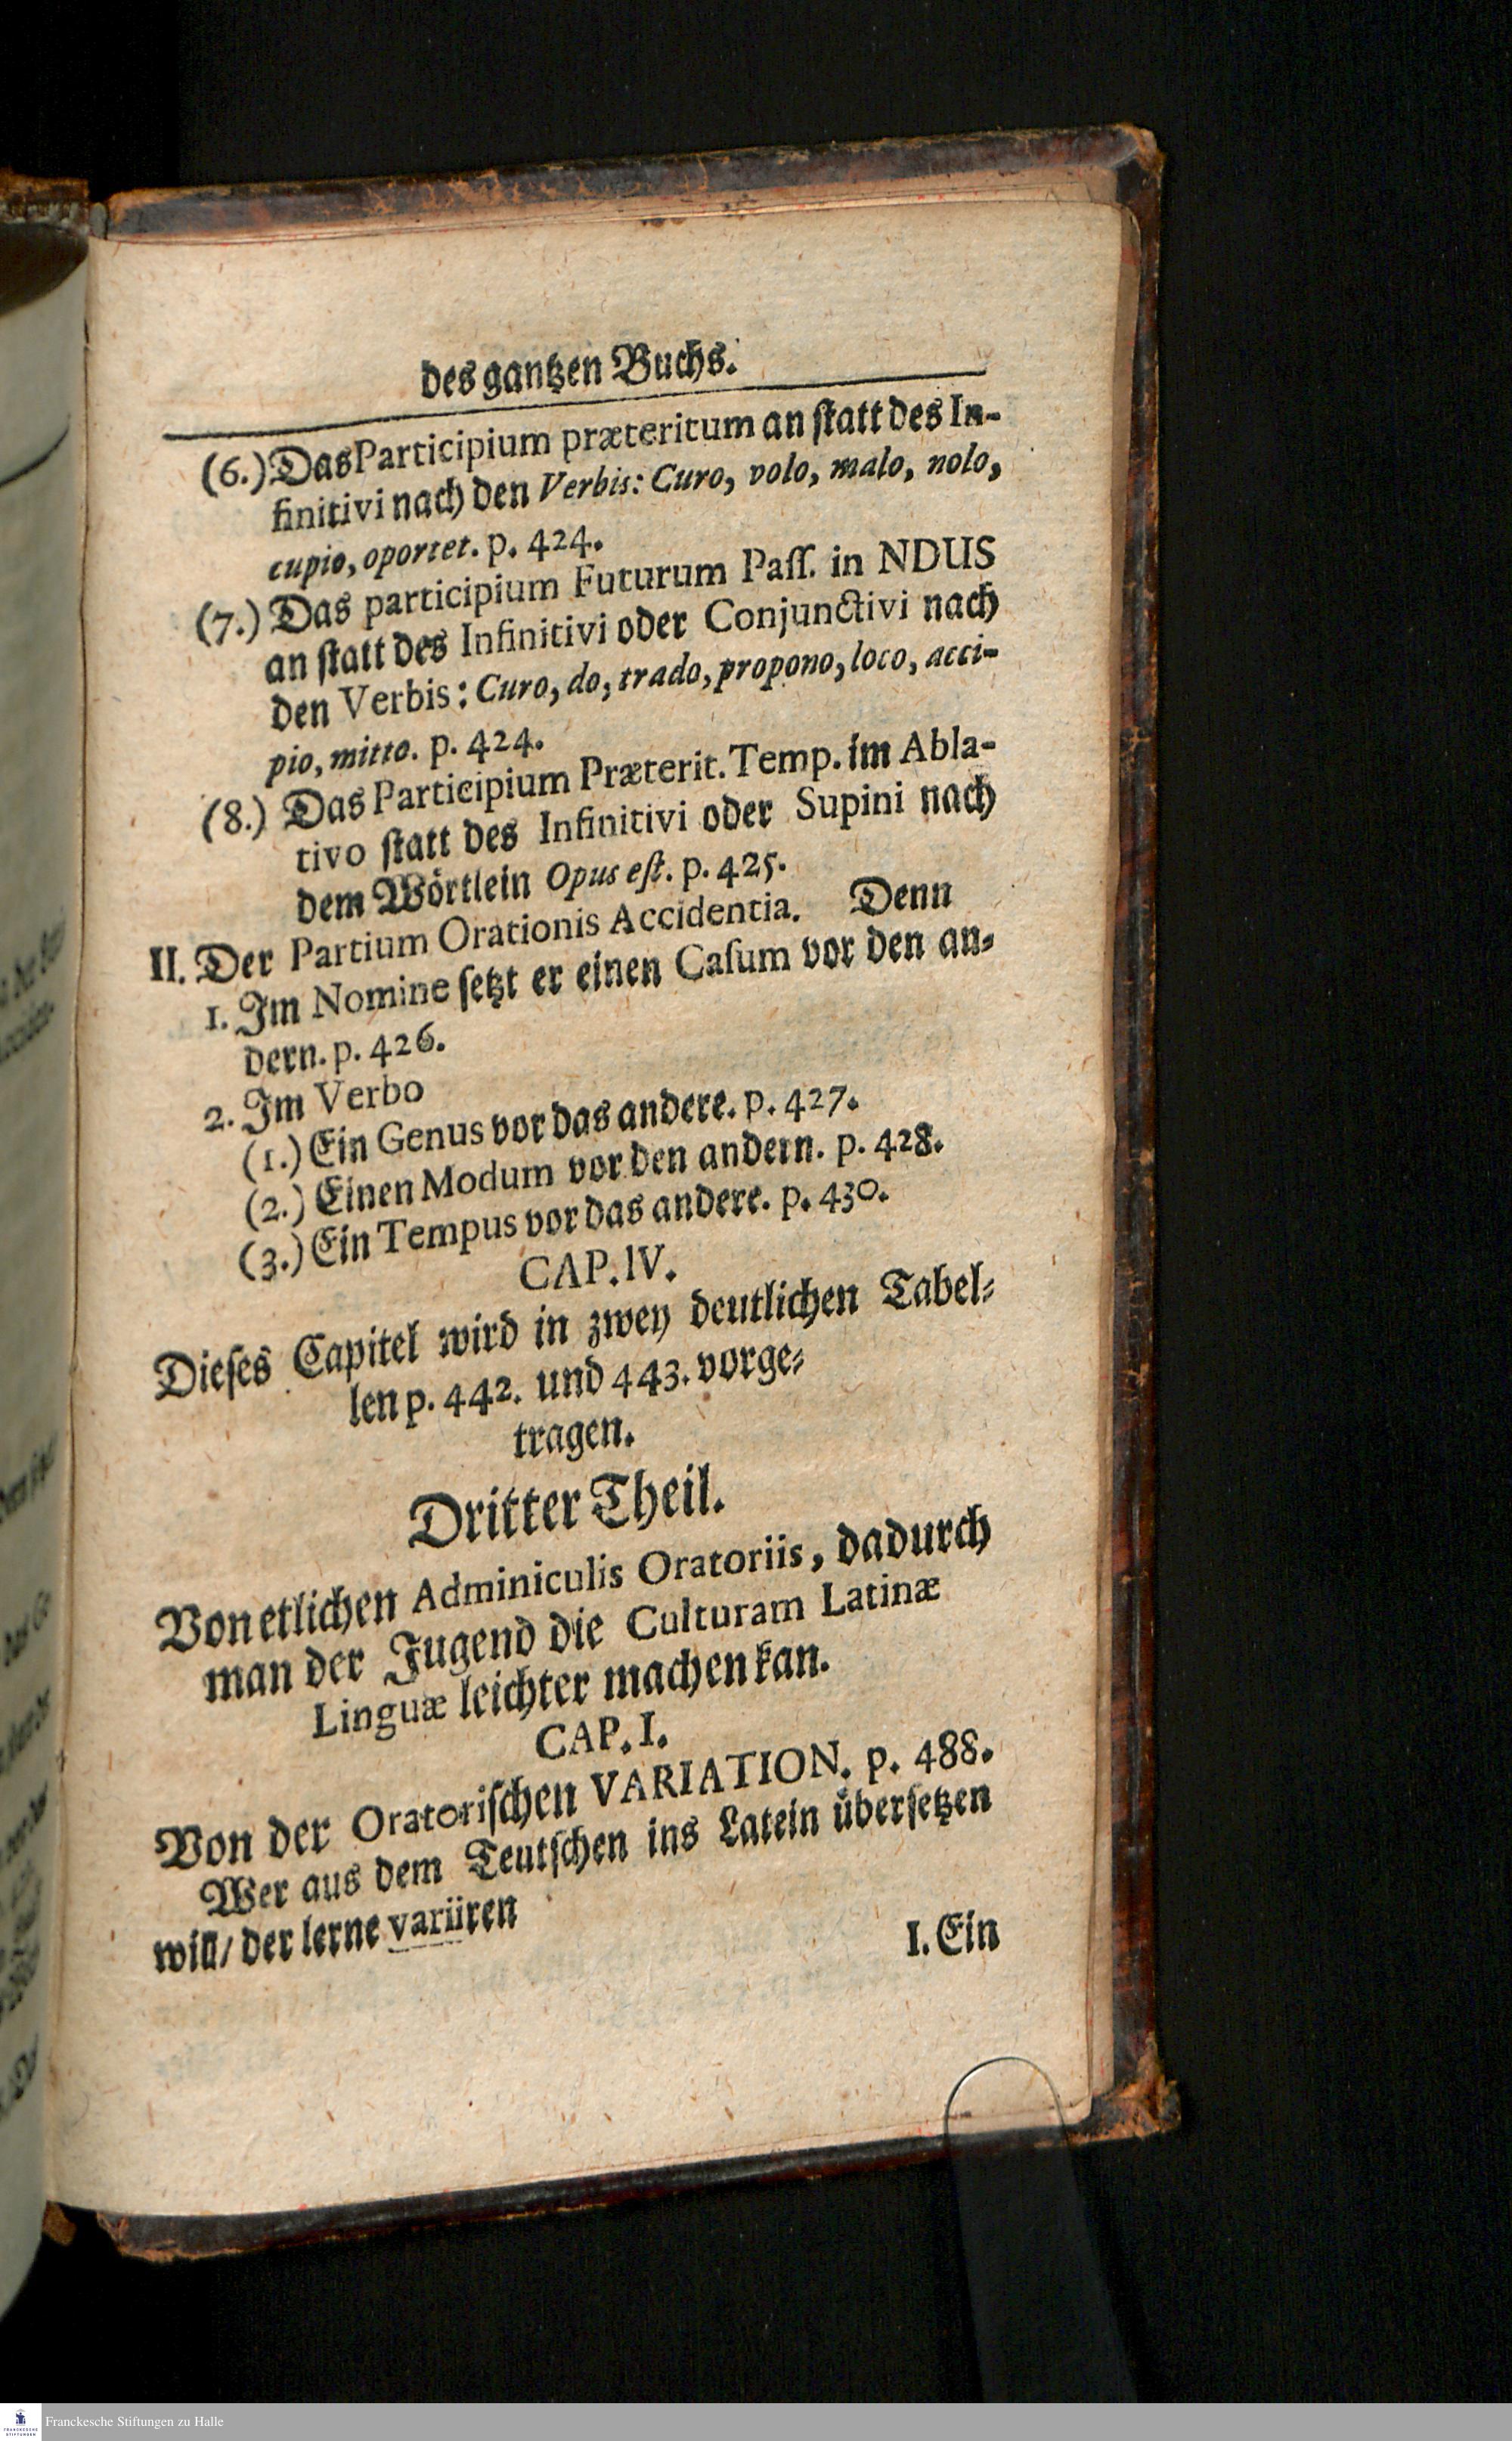 des gantzen Buchs.
(6.) Das Participium præteritum an ſtatt des In-
finitivi nach den Verbis: Curo, volo, malo, nolo,
cupio, oportet. p. 424.
(7.) Das participium Futurum Paſſ. in NDUS
an ſtatt des Infinitivi oder Conjunctivi nach
den Verbis: Curo, do, trado, propono, loco, acci-
pio, mitto. p. 424.
(8.) Das Participium Præterit. Temp. im Abla-
tivo ſtatt des Infinitivi oder Supini nach
dem Wörtlein Opus eſt. p. 425.
II. Der Partium Orationis Accidentia. Denn
1. Im Nomine ſetzt er einen Caſum vor den an-
dern. p. 426.
2. Im Verbo
(1.) Ein Genus vor das andere. p. 427.
(2.) Einen Modum vor den andern. p. 428.
(3.) Ein Tempus vor das andere. p. 430.
CAP. IV.
Dieſes Capitel wird in zwey deutlichen Tabel-
len p. 442. und 443. vorge-
tragen.
Dritter Theil.
Von etlichen Adminiculis Oratoriis, dadurch
man der Jugend die Culturam Latinæ
Linguæ leichter machen kan.
CAP. I.
Von der Oratoriſchen VARIATION. p. 488.
Wer aus dem Teutſchen ins Latein überſetzen
will/ der lerne variiren
I. Ein
Franckesche Stiftungen zu Halle